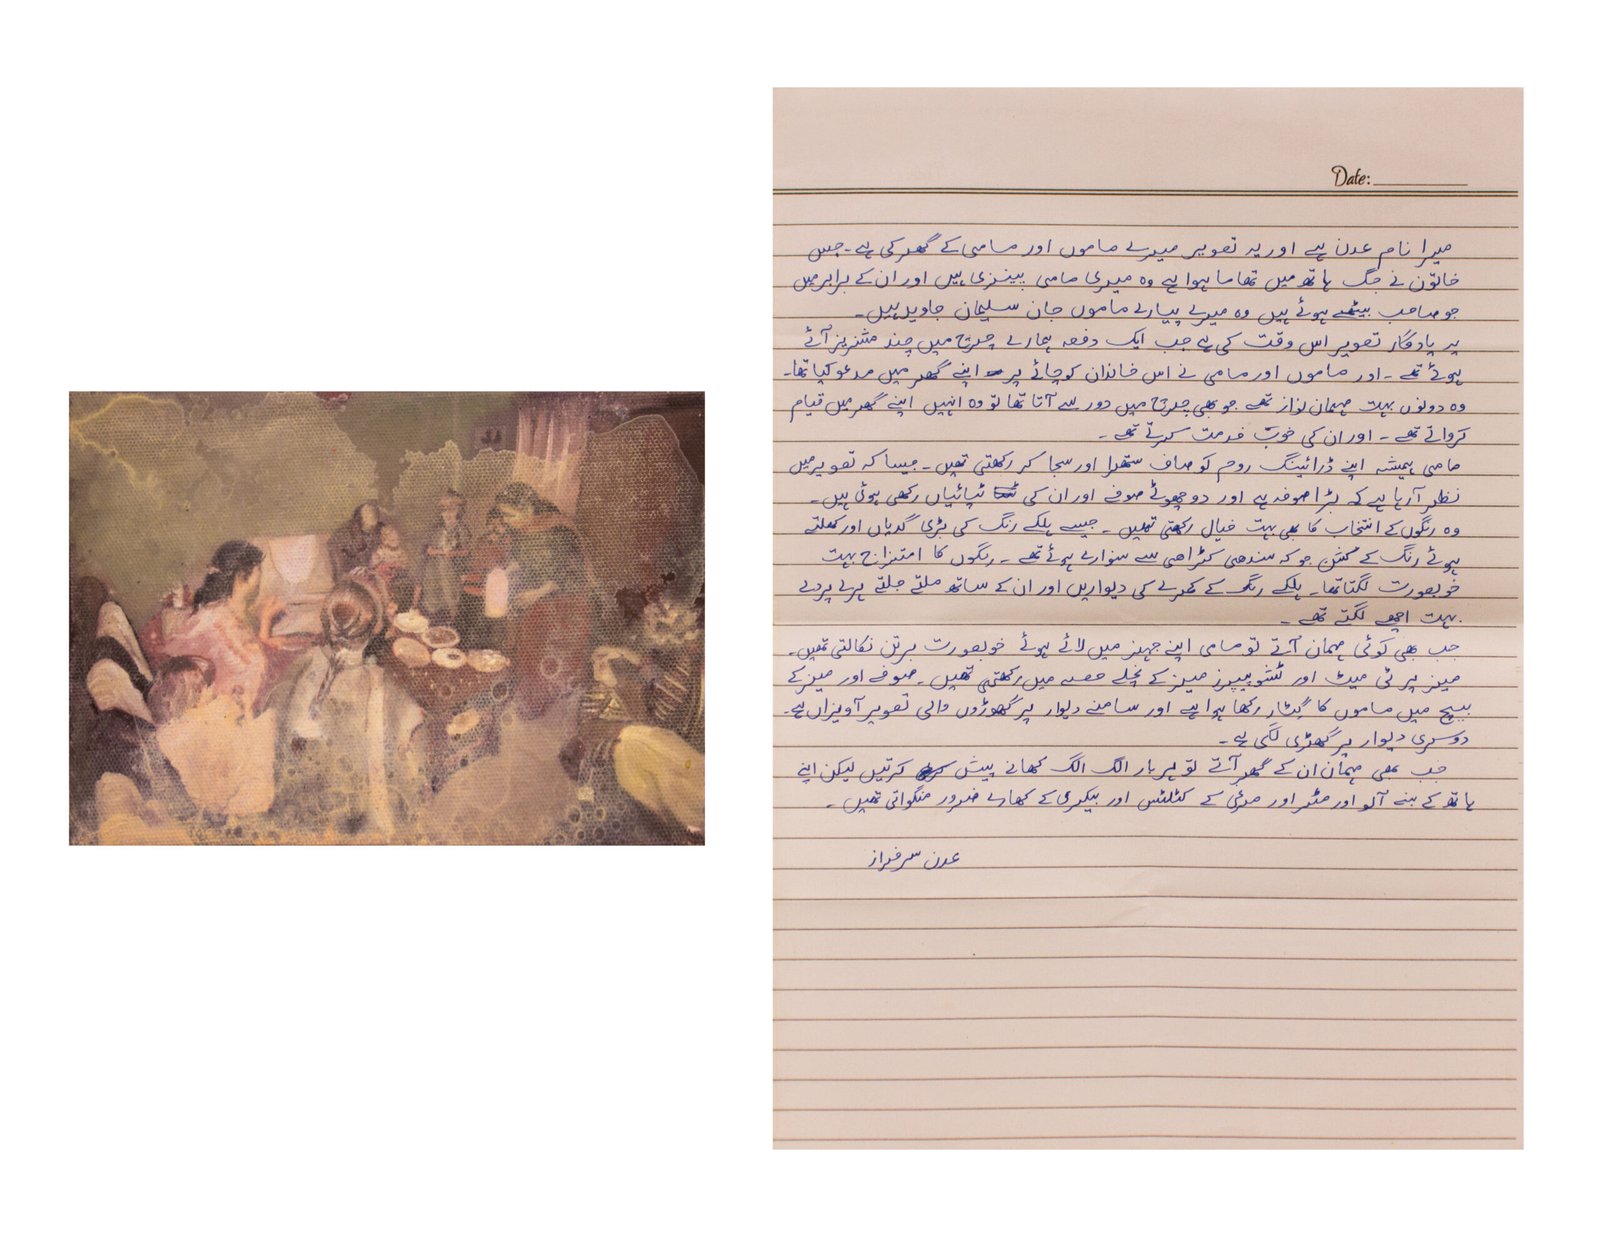 Date:
میرا نام عدن ہے اور یہ تصویر میرے ماموں اور مامی کے گھر کی ہے۔ جس
خاتون نے جگ ہاتھ میں تھاما ہوا ہے وہ میری مامی ہیں اور ان کے برابر میں
جو صاحب بیٹھے ہوئے ہیں وہ میرے پیارے ماموں جان سلیمان جاوید ہیں۔
یہ یادگار تصویر اس وقت کی ہے جب ایک دفعہ ہمارے چرچ میں چند مشنریز آئے
ہوئے تھے۔ اور ماموں اور مامی نے اس خاندان کو چائے پر اپنے گھر میں مدعو کیا تھا۔
وہ دونوں بہت مہمان نواز تھے جو بھی چرچ میں دور سے آتا تھا تو وہ انہیں اپنے گھر میں قیام
کرواتے تھے۔ اور ان کی خوب خدمت کرتے تھے۔
مامی ہمیشہ اپنے ڈرائینگ روم کو صاف ستھرا اور سجا کر رکھتی تھیں۔ جیسا کہ تصویر میں
نظر آرہا ہے کہ بڑا صوفہ ہے اور دو چھوٹے صوفے اور ان کی ٹپائیاں رکھی ہوئی ہیں۔
وہ رنگوں کے انتخاب کا بھی بہت خیال رکھتی تھیں۔ جیسے ہلکے رنگ کی بڑی گدیاں اور کھلتے
ہوئے رنگ کے کشن جو کہ سندھی کڑاھی سے سنوارے ہوئے تھے۔ رنگوں کا امتزاج بہت
خوبصورت لگتا تھا۔ ہلکے رنگ کے کمرے کی دیواریں اور ان کے ساتھ ملتے جلتے ہرے پردے
بہت اچھے لگتے تھے۔
جب بھی کوئی مہمان آتے تو مامی اپنے جہیز میں لائے ہوئے خوبصورت برتن نکالتی تھیں۔
میز پر ٹی میٹ اور ٹشو پیپرز میز کے نچلے حصے میں رکھتی تھیں۔ صوفے اور میز کے
بیچ میں ماموں کا گٹار رکھا ہوا ہے اور سامنے دیوار پر گھوڑوں والی تصویر آویزاں ہے۔
دوسری دیوار پر گھڑی لگی ہے۔
جب بھی مہمان ان کے گھر آتے تو ہر بار الگ الگ کھانے پیش کرتیں لیکن اپنے
ہاتھ کے بنے آلو اور مٹر اور مرغی کے کٹلٹس اور بیکری کے کھارے ضرور منگواتی تھیں۔
عدن سرفراز